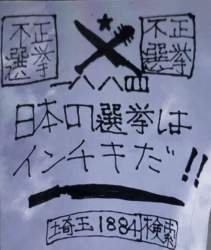 不正選挙
不正選挙
一八八四
日本の選挙は
インチキだ!!
埼玉1884検索